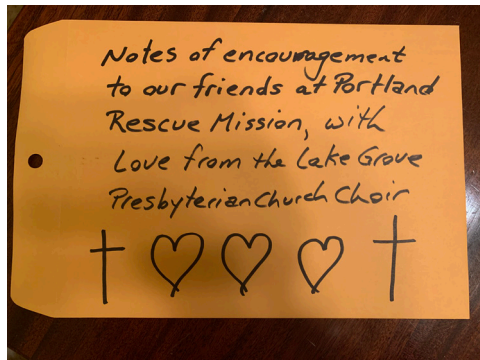 Notes of encouragement
to our friends at Portland
Rescue Mission, with
Love from the Lake Grove
Presbyterian Church Choir